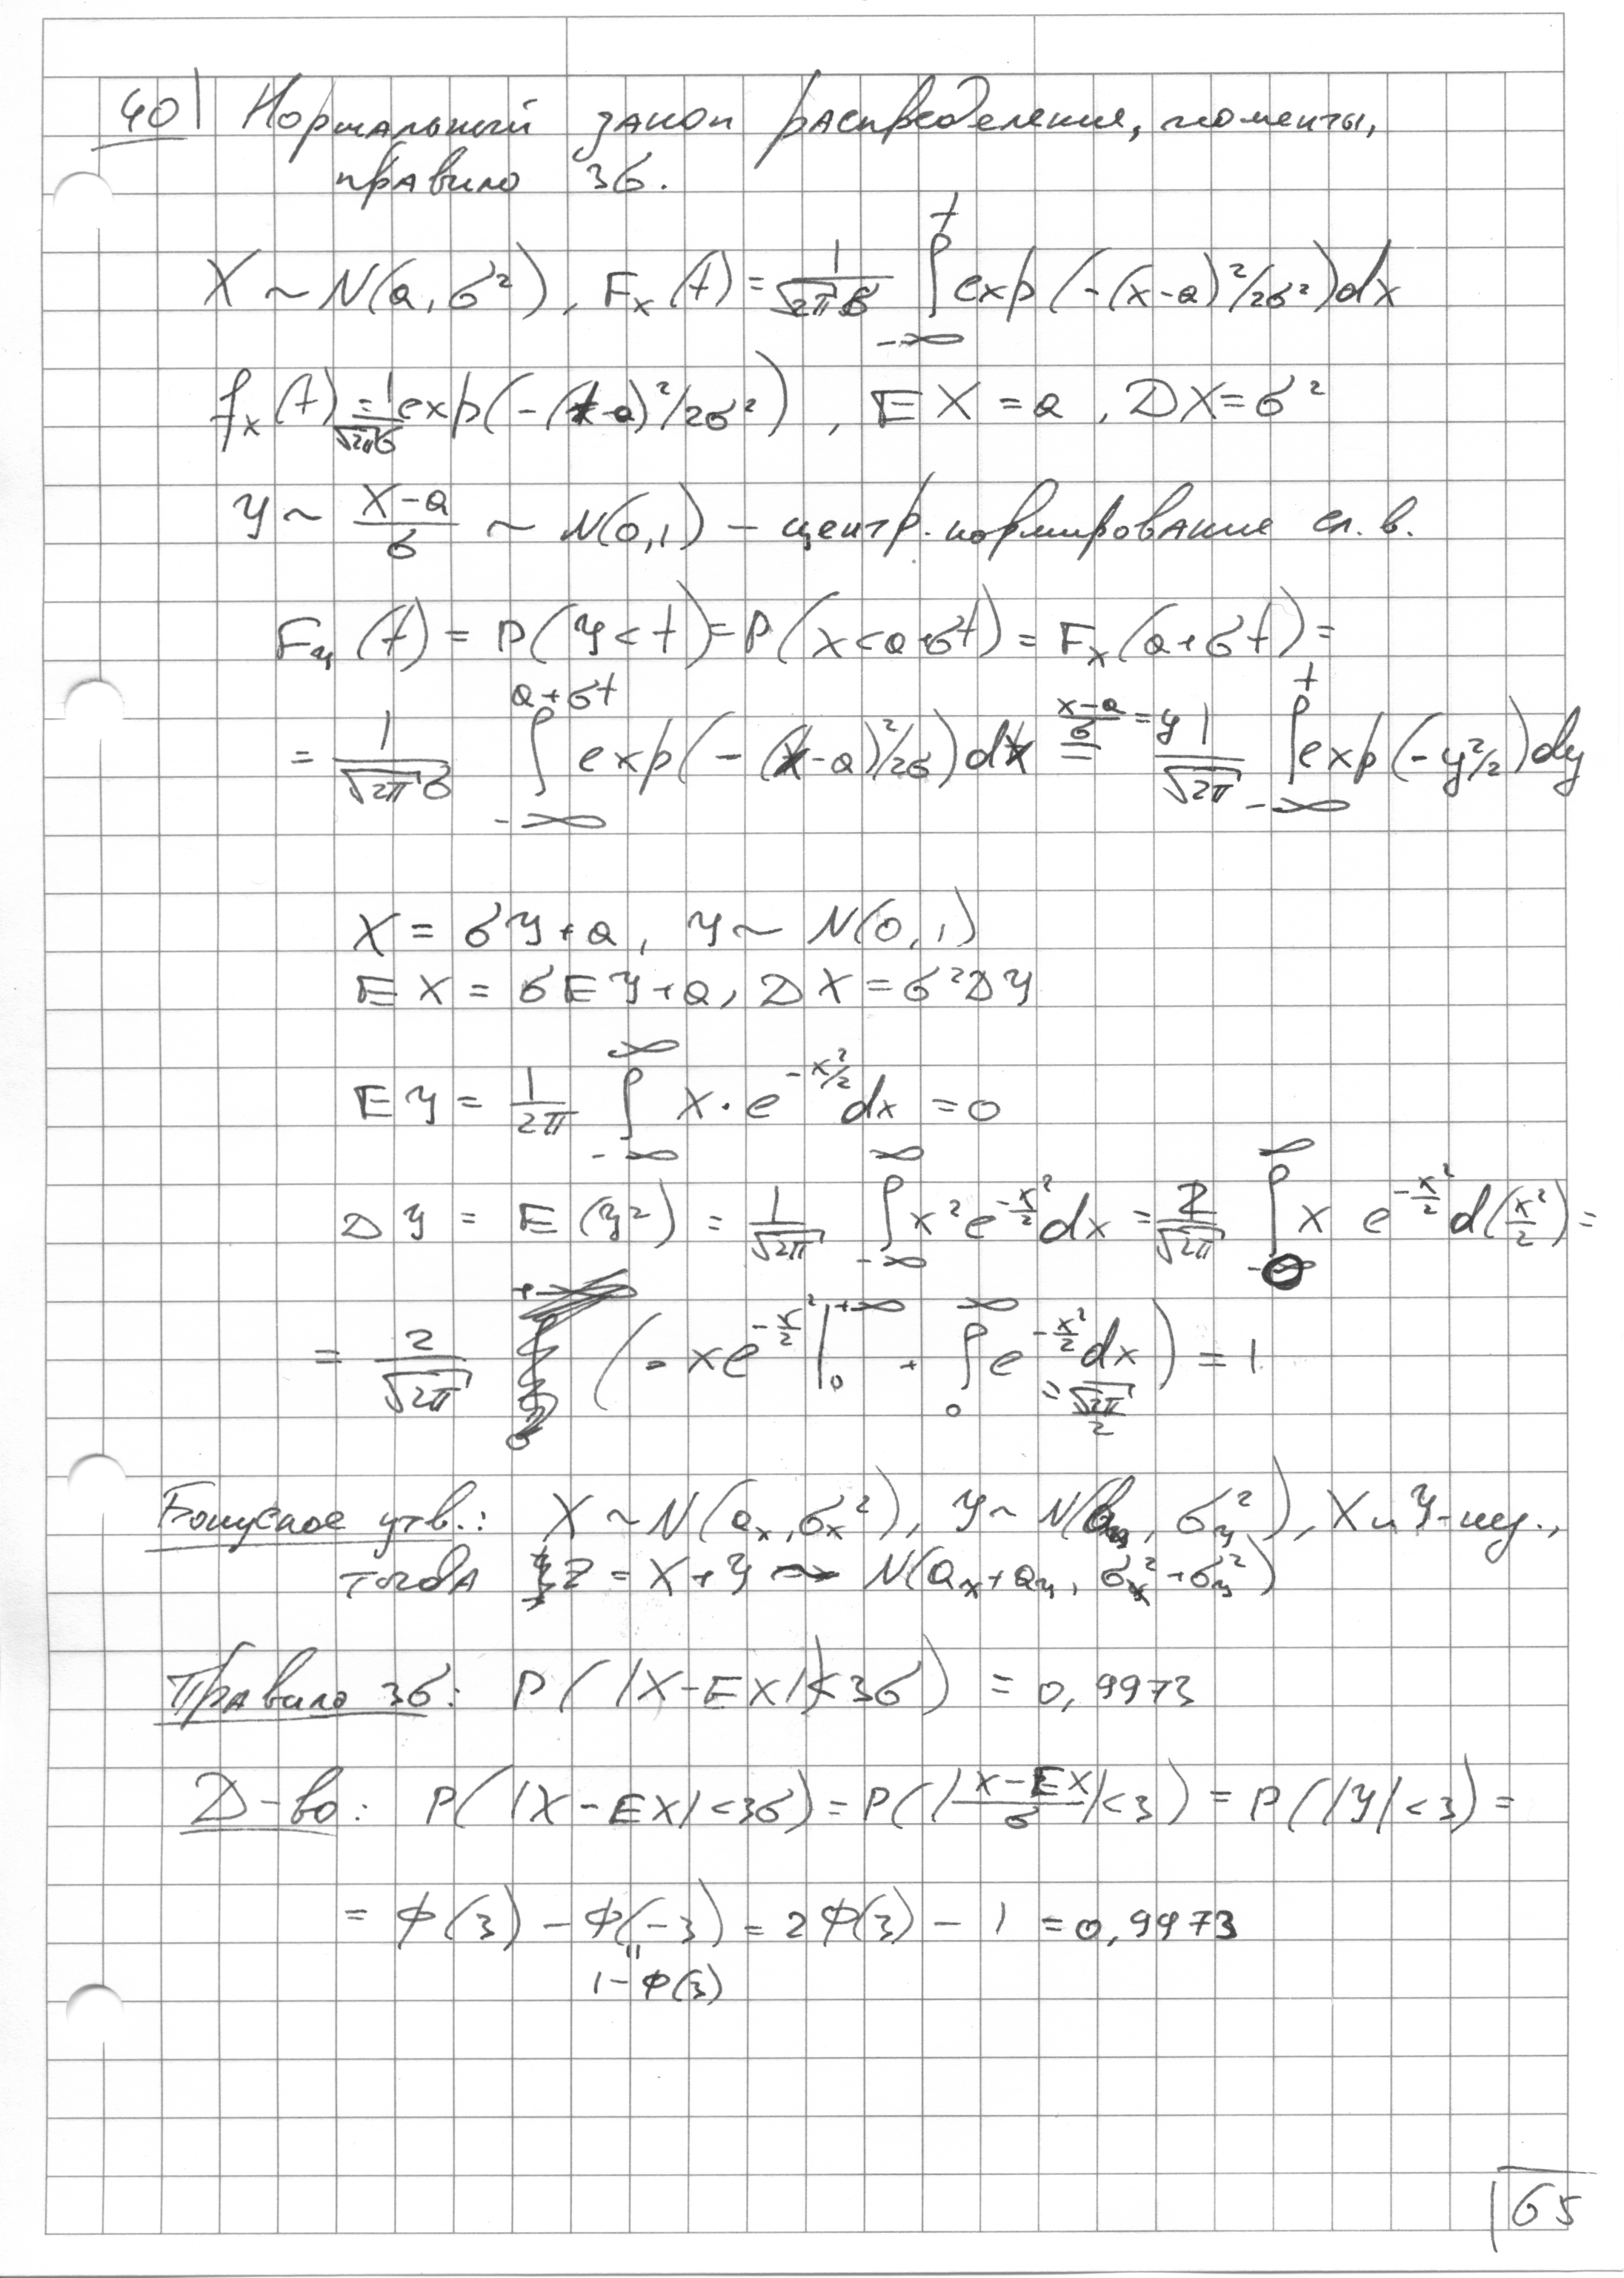 40) Нормальный закон распределения, моменты,
правило 3σ.
X ~ N(a, σ²), F_X(t) = 1/(√2π σ) ∫_{-∞}^{t} exp(-(x-a)²/2σ²)dx
f_X(t) = 1/(√2π σ) exp(-(t-a)²/2σ²), EX = a, DX = σ²
Y ~ (X-a)/σ ~ N(0,1) – центр. нормирование сл. в.
F_Y(t) = P(Y < t) = P(X < a+σt) = F_X(a+σt) =
= 1/(√2π σ) ∫_{-∞}^{a+σt} exp(-(x-a)²/2σ)dx =^{(x-a)/σ = y} 1/√2π ∫_{-∞}^{t} exp(-y²/2)dy
X = σY + a, Y ~ N(0,1)
EX = σEY + a, DX = σ²DY
EY = 1/2π ∫_{-∞}^{∞} x · e^{-x²/2} dx = 0
DY = E(Y²) = 1/√2π ∫_{-∞}^{∞} x² e^{-x²/2} dx = 2/√2π ∫_{0}^{∞} x e^{-x²/2} d(x²/2) =
= 2/√2π (-x e^{-x²/2} |_{0}^{+∞} + ∫_{0}^{∞} e^{-x²/2} dx = √2π/2) = 1
Бонусное утв.: X ~ N(a_x, σ_x²), Y ~ N(a_y, σ_y²), X и Y – нез.,
тогда Z = X + Y ~ N(a_x + a_y, σ_x² + σ_y²)
Правило 3σ: P(|X - EX| < 3σ) = 0,9973
Д-во: P(|X - EX| < 3σ) = P(|(X - EX)/σ| < 3) = P(|Y| < 3) =
= Φ(3) - Φ(-3) = 2Φ(3) - 1 = 0,9973
" 1 - Φ(3)
65